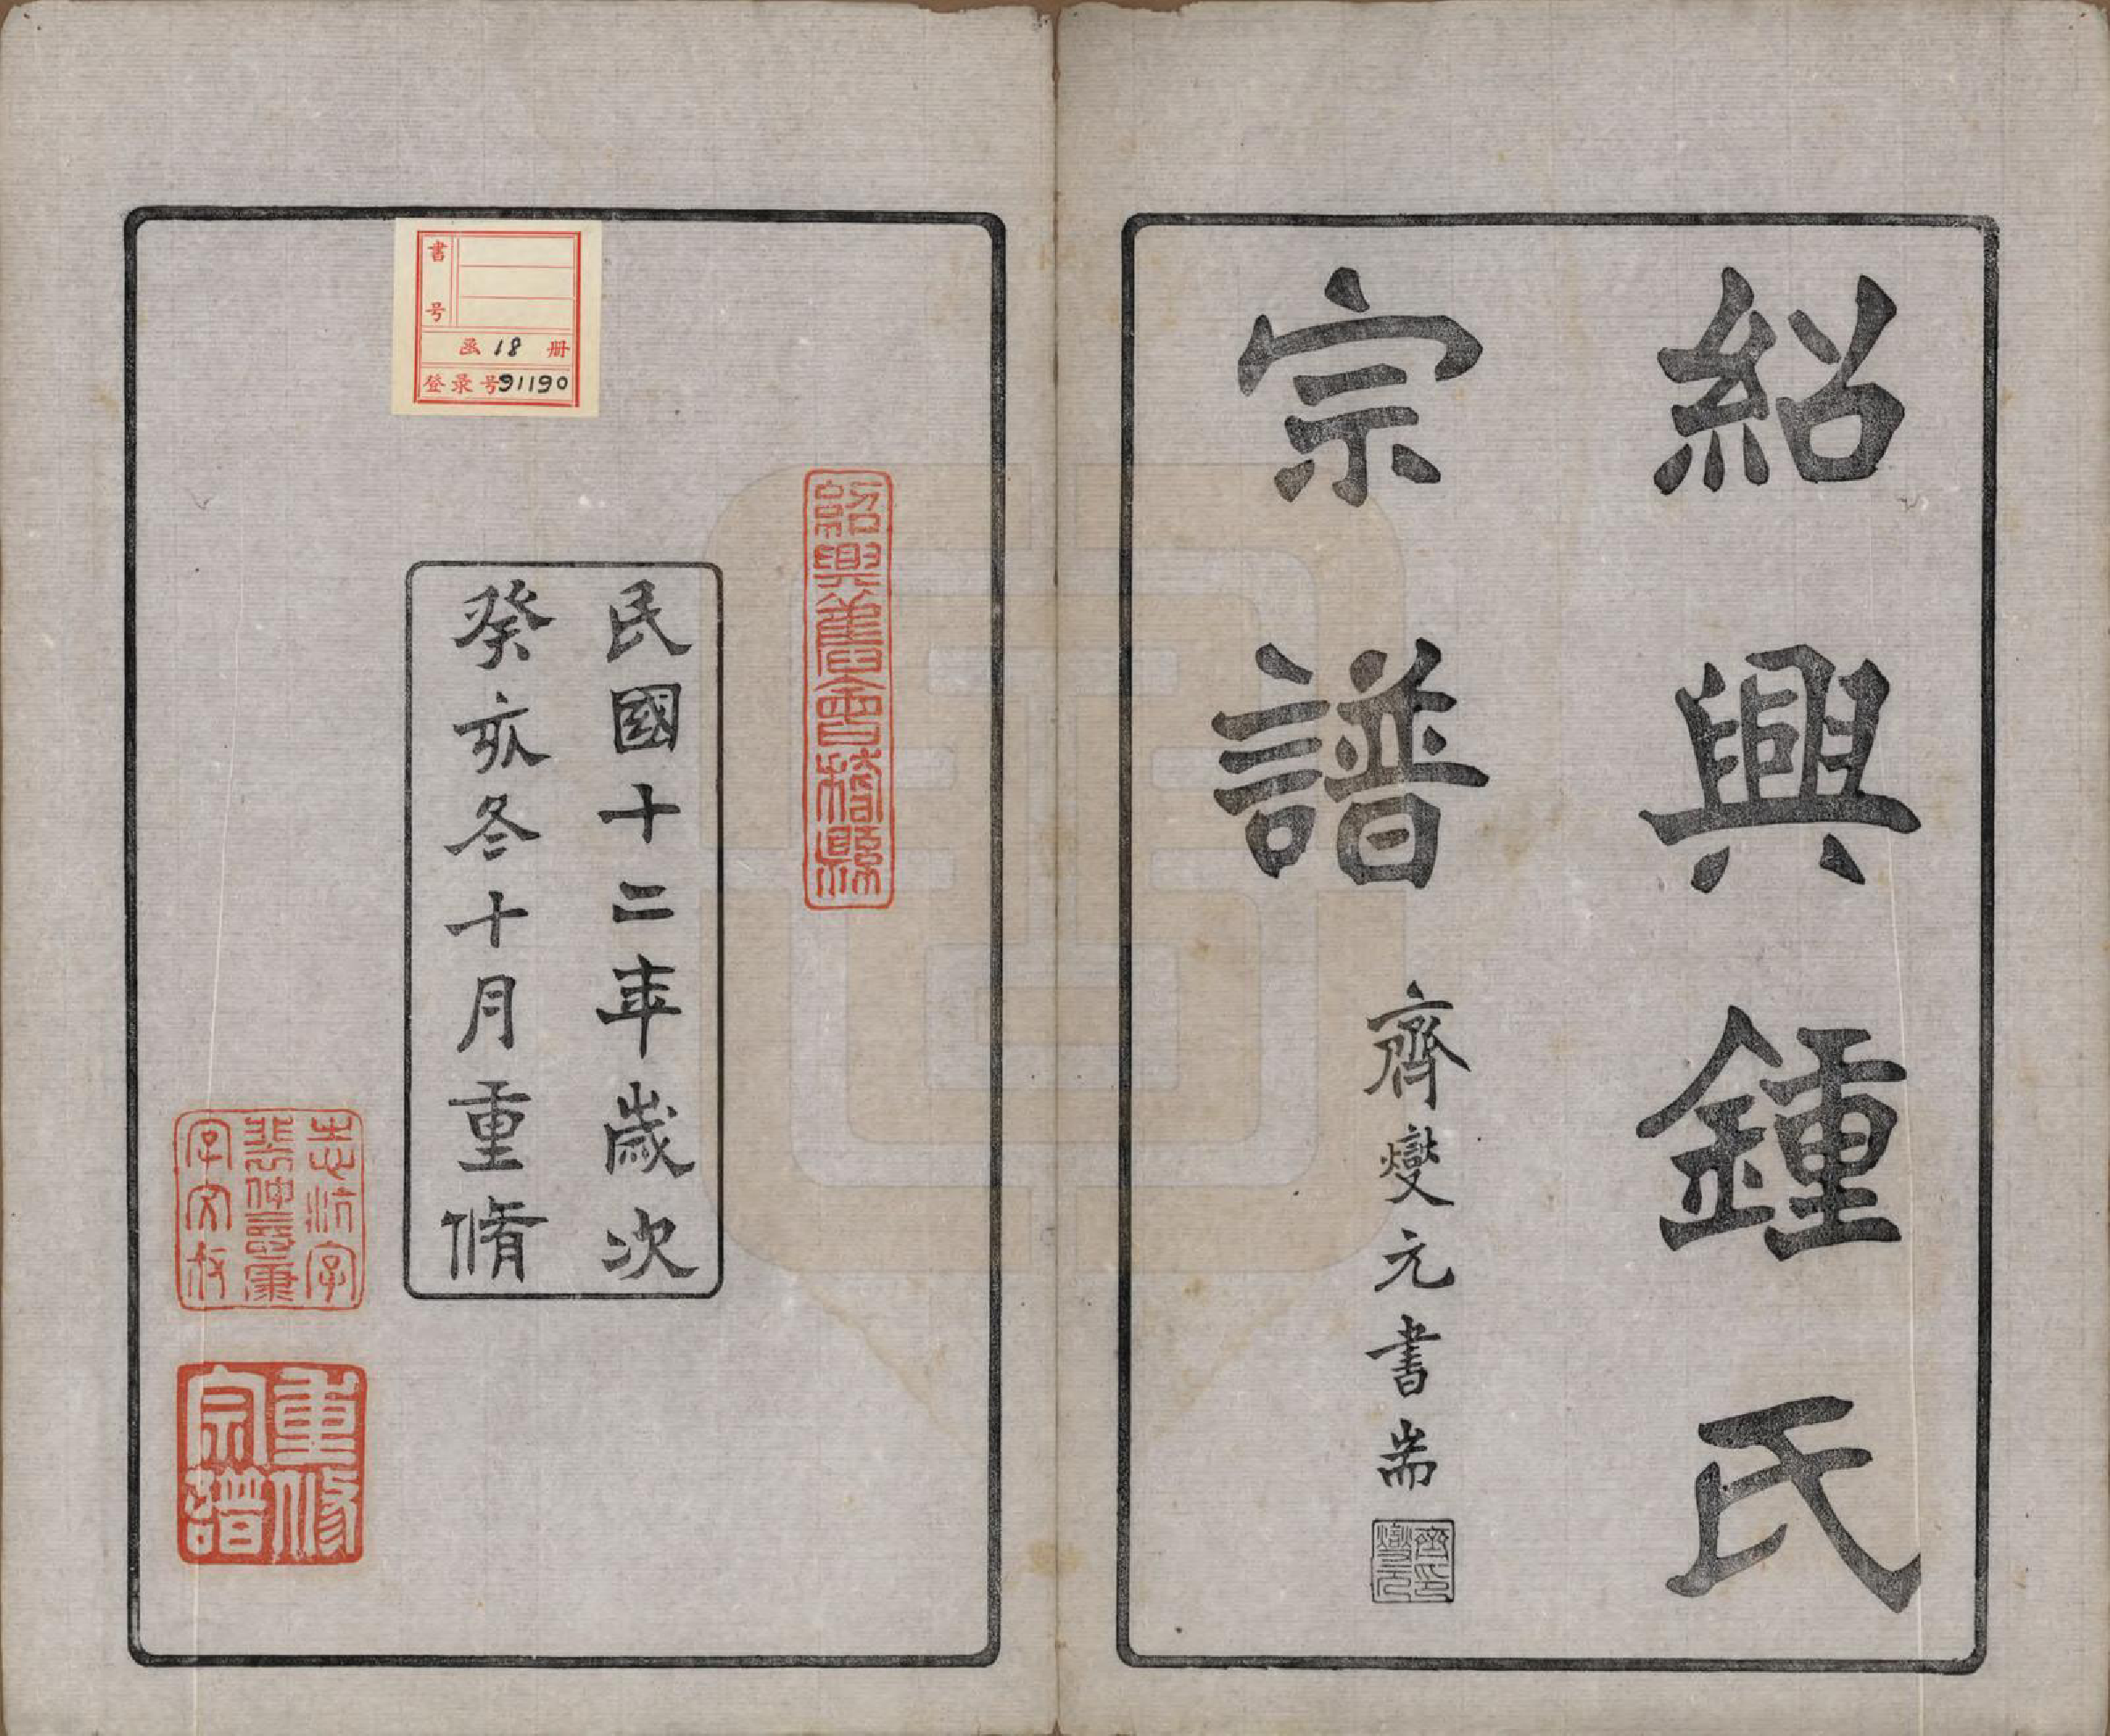 紹興鍾氏
宗譜
齊燮元書耑
齊燮元印
紹興舊會稽縣
民國十二年歲次
癸亥冬十月重脩
書号
函 18 册
登录号 91190
重修
宗譜